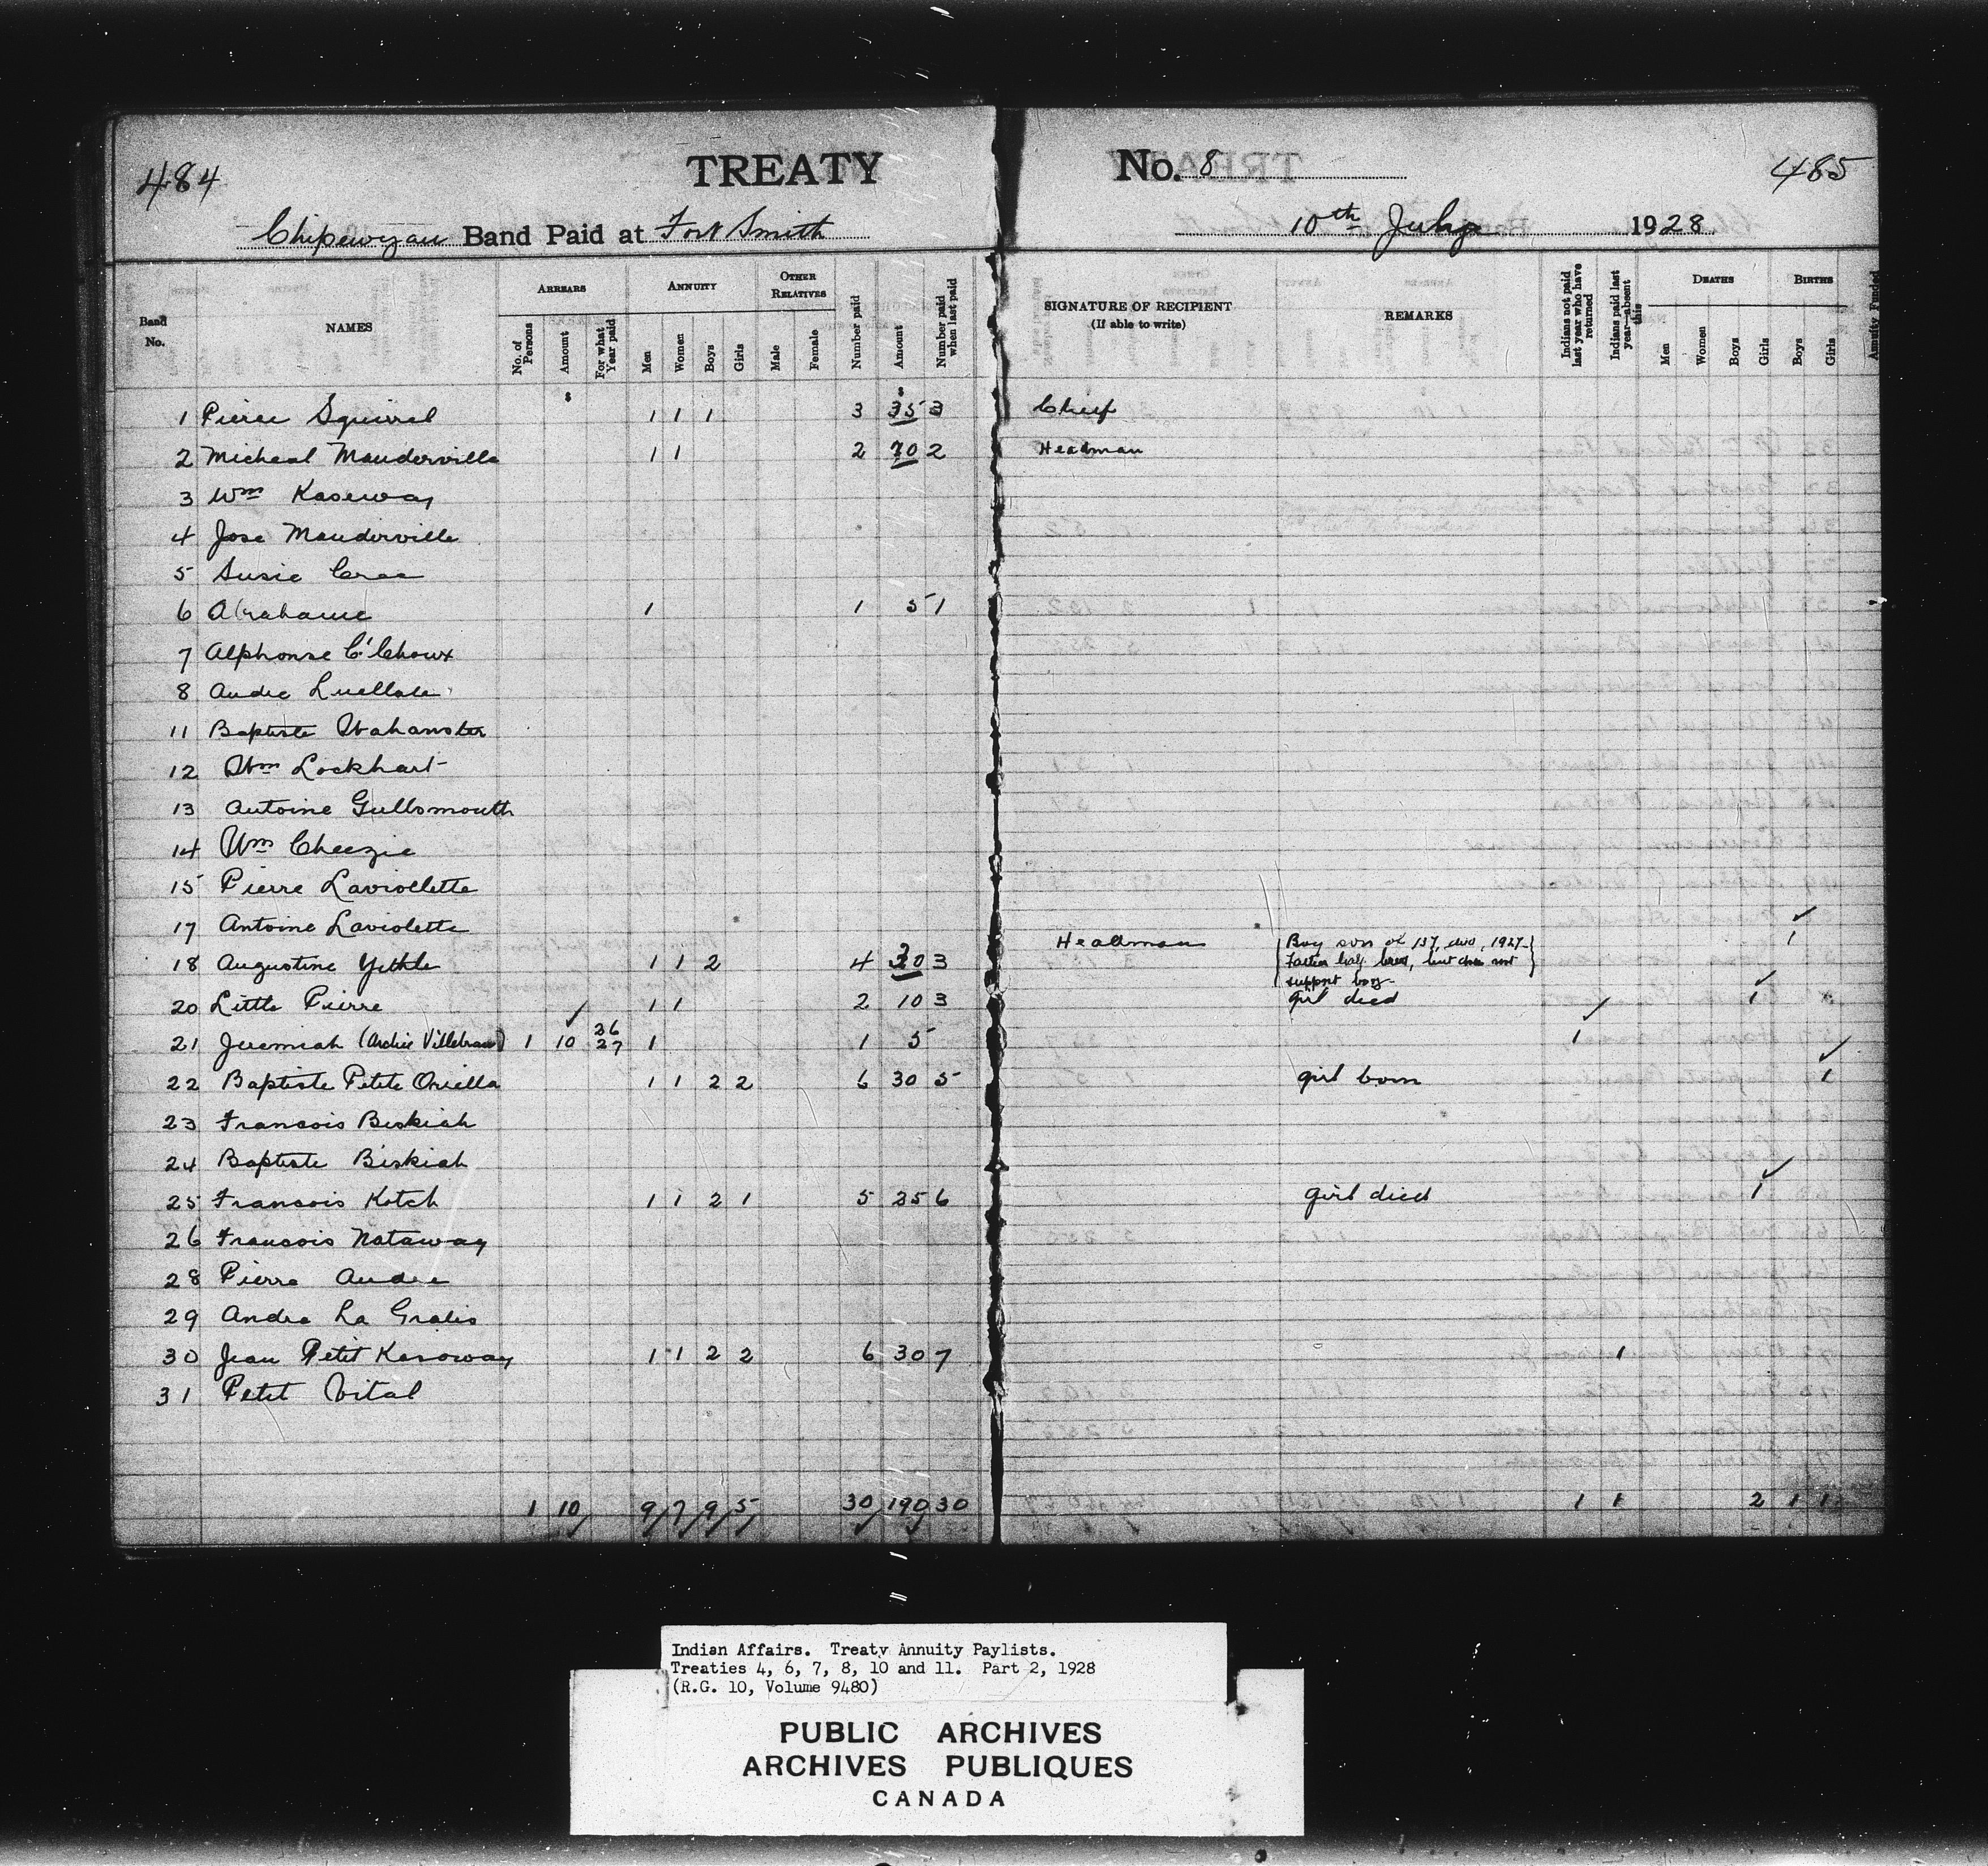 484 TREATY No. 8 485
Chipewyan Band Paid at Fort Smith 10th July 1928
Band No. NAMES ARREARS ANNUITY OTHER RELATIVES Number paid Amount Number paid when last paid SIGNATURE OF RECIPIENT (If able to write) REMARKS Indians not paid last year who have returned Indians paid last year—absent this DEATHS BIRTHS Annuity Funded
No. of Persons Amount For what Year paid Men Women Boys Girls Male Female Men Women Boys Girls Boys Girls
$ $
1 Pierre Squirrel 1 1 1 3 35 3 Chief
2 Micheal Mandervilla 1 1 2 20 2 Headman
3 Wm Kaseway
4 Jose Manderville
5 Susie Cree
6 Abrahame 1 1 5 1
7 Alphonse C'Choux
8 Andre
11 Baptiste
12 Wm Lockhart
13 Antoine Gullsmouth
14 Wm Cheezie
15 Pierre Laviollette
17 Antoine Laviolette
18 Augustine Yethle 1 1 2 4 30 3 Headman Boy son of 137, 1927 1
Father half breed, but does not
support boy
20 Little Pierre 1 1 2 10 3 girl died 1
21 Jeremiah (Archie Villebrun) 1 10 26 27 1 1 5 1
22 Baptiste Petite Oriella 1 1 2 2 6 30 5 girl born 1
23 Francois Biskiah
24 Baptiste Biskiah
25 Francois Kotch 1 1 2 1 5 25 6 girl died 1
26 Francois Nataway
28 Pierre Andre
29 Andre La Gralis
30 Jean Petit Kasoway 1 1 2 2 6 30 7 1
31 Petit Vital
1 10 9 7 9 5 30 190 30 1 1 2 1 1
Indian Affairs. Treaty Annuity Paylists.
Treaties 4, 6, 7, 8, 10 and 11. Part 2, 1928
(R.G. 10, Volume 9480)
PUBLIC ARCHIVES
ARCHIVES PUBLIQUES
CANADA